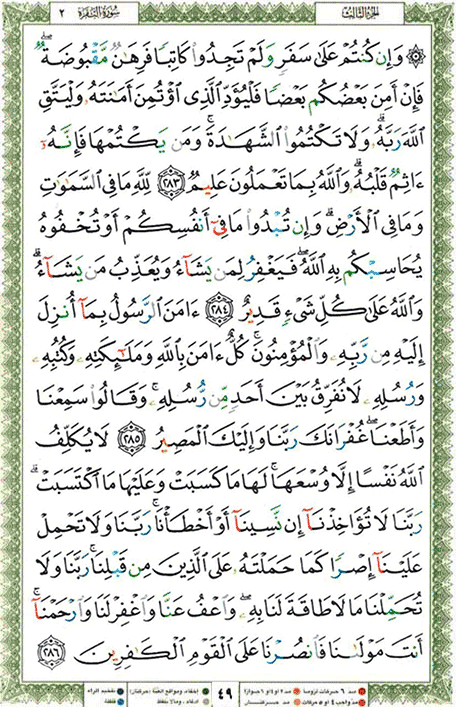 الجزء الثالث
سورة البقرة ٢
۞ وَإِن كُنتُمْ عَلَىٰ سَفَرٍ وَلَمْ تَجِدُوا۟ كَاتِبًا فَرِهَٰنٌ مَّقْبُوضَةٌ ۖ
فَإِنْ أَمِنَ بَعْضُكُم بَعْضًا فَلْيُؤَدِّ الَّذِى اؤْتُمِنَ أَمَٰنَتَهُۥ وَلْيَتَّقِ
اللَّهَ رَبَّهُۥ ۗ وَلَا تَكْتُمُوا۟ الشَّهَٰدَةَ ۚ وَمَن يَكْتُمْهَا فَإِنَّهُۥٓ
ءَاثِمٌ قَلْبُهُۥ ۗ وَاللَّهُ بِمَا تَعْمَلُونَ عَلِيمٌ ٢٨٣ لِّلَّهِ مَا فِى السَّمَٰوَٰتِ
وَمَا فِى الْأَرْضِ ۗ وَإِن تُبْدُوا۟ مَا فِىٓ أَنفُسِكُمْ أَوْ تُخْفُوهُ
يُحَاسِبْكُم بِهِ اللَّهُ ۖ فَيَغْفِرُ لِمَن يَشَآءُ وَيُعَذِّبُ مَن يَشَآءُ ۗ
وَاللَّهُ عَلَىٰ كُلِّ شَىْءٍ قَدِيرٌ ٢٨٤ ءَامَنَ الرَّسُولُ بِمَآ أُنزِلَ
إِلَيْهِ مِن رَّبِّهِۦ وَالْمُؤْمِنُونَ ۚ كُلٌّ ءَامَنَ بِاللَّهِ وَمَلَٰٓئِكَتِهِۦ وَكُتُبِهِۦ
وَرُسُلِهِۦ لَا نُفَرِّقُ بَيْنَ أَحَدٍ مِّن رُّسُلِهِۦ ۚ وَقَالُوا۟ سَمِعْنَا
وَأَطَعْنَا ۖ غُفْرَانَكَ رَبَّنَا وَإِلَيْكَ الْمَصِيرُ ٢٨٥ لَا يُكَلِّفُ
اللَّهُ نَفْسًا إِلَّا وُسْعَهَا ۚ لَهَا مَا كَسَبَتْ وَعَلَيْهَا مَا اكْتَسَبَتْ ۗ
رَبَّنَا لَا تُؤَاخِذْنَآ إِن نَّسِينَآ أَوْ أَخْطَأْنَا ۚ رَبَّنَا وَلَا تَحْمِلْ
عَلَيْنَآ إِصْرًا كَمَا حَمَلْتَهُۥ عَلَى الَّذِينَ مِن قَبْلِنَا ۚ رَبَّنَا وَلَا
تُحَمِّلْنَا مَا لَا طَاقَةَ لَنَا بِهِۦ ۖ وَاعْفُ عَنَّا وَاغْفِرْ لَنَا وَارْحَمْنَآ ۚ
أَنتَ مَوْلَىٰنَا فَانصُرْنَا عَلَى الْقَوْمِ الْكَٰفِرِينَ ٢٨٦
٤٩
مد ٦ حركات لزوما
مد ٢ أو ٤ أو ٦ جوازا
إخفاء، ومواقع الغنة (حركتان)
تفخيم الراء
مد واجب ٤ أو ٥ حركات
مد حركتان
إدغام، وما لا يلفظ
قلقلة